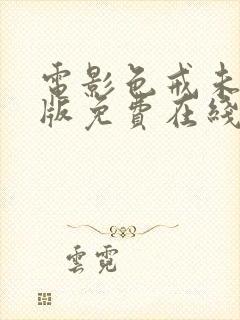 電影色戒未
版免費在綫
雲霓